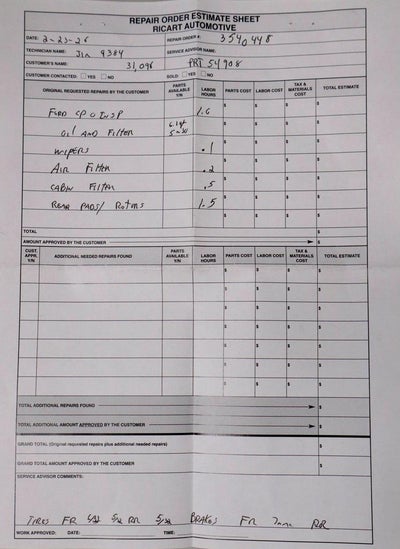 REPAIR ORDER ESTIMATE SHEET
RICART AUTOMOTIVE
DATE: 2-23-26 REPAIR ORDER #: 3540448
TECHNICIAN NAME: Jim 9384 SERVICE ADVISOR NAME:
CUSTOMER'S NAME: 31,096 PRT 54908
CUSTOMER CONTACTED: YES NO SOLD: YES NO
ORIGINAL REQUESTED REPAIRS BY CUSTOMER PARTS AVAILABLE Y/N LABOR HOURS PARTS COST LABOR COST TAX & MATERIALS COST TOTAL ESTIMATE
FORD CPO INSP 1.6 $ $ $ $
Oil AND Filter 6.1 qt 5-w30 $ $ $ $
WIPERS .1 $ $ $ $
AIR Filter .2 $ $ $ $
CABIN Filter .5 $ $ $ $
REAR PADS/ ROTORS 1.5 $ $ $ $
TOTAL $
AMOUNT APPROVED BY THE CUSTOMER $
CUST. APPR. Y/N ADDITIONAL NEEDED REPAIRS FOUND PARTS AVAILABLE Y/N LABOR HOURS PARTS COST LABOR COST TAX & MATERIALS COST TOTAL ESTIMATE
$ $ $ $
$ $ $ $
$ $ $ $
$ $ $ $
$ $ $ $
$ $ $ $
TOTAL ADDITIONAL REPAIRS FOUND $
TOTAL ADDITIONAL AMOUNT APPROVED BY THE CUSTOMER $
GRAND TOTAL (Original requested repairs plus additional needed repairs) $
GRAND TOTAL AMOUNT APPROVED BY THE CUSTOMER $
SERVICE ADVISOR COMMENTS:
TIRES FR 5/32 RR 5/32 BRAKES FR 7mm RR
WORK APPROVED: DATE: TIME: